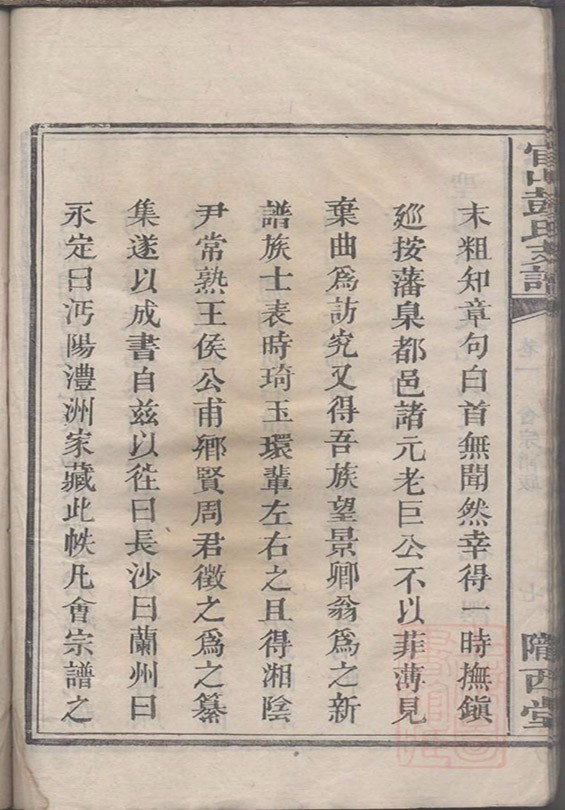 末粗知章句白首無聞然幸得一時撫鎭
廵按藩臬都邑諸元老巨公不以菲薄見
棄曲爲訪究又得吾族望景卿翁爲之新
譜族士表時琦玉環軰左右之且得湘陰
尹常熟王侯公甫鄉賢周君徵之爲之纂
集遂以成書自兹以徃曰長沙曰蘭州曰
永定曰沔陽澧洲家藏此帙凡會宗譜之
彭氏支譜
卷一
隴西堂